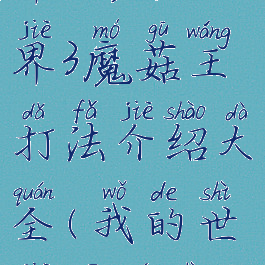 jiè mó gū wáng
界3魔菇王
dǎ fǎ jiè shào dà
打法介绍大
quán wǒ de shì
全(我的世